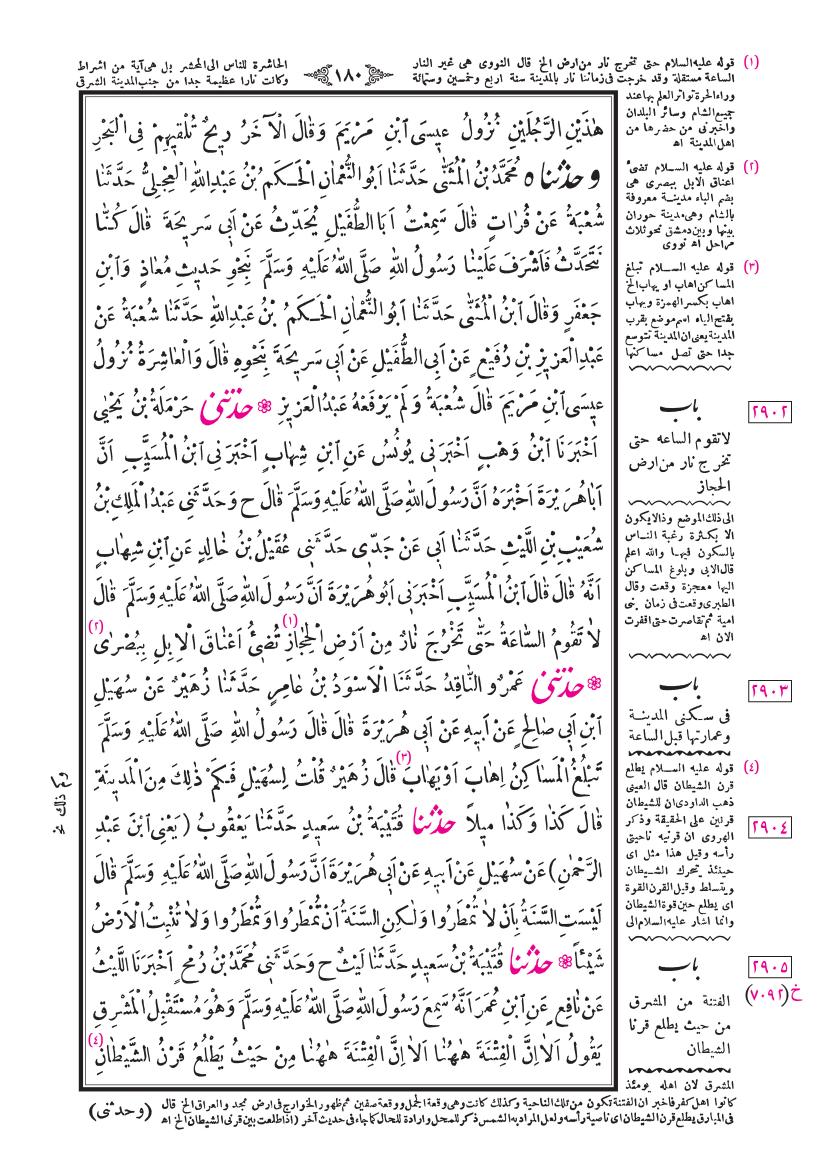 (١) قوله عليه السلام حتى تخرج نار من ارض الخ قال النووى هى غير النار
الساعة مستقلة وقد خرجت فى زماننا نار بالمدينة سنة اربع وخمسين وستمائة
١٨٠
الحاشرة للناس الى المحشر بل هى آية من اشراط
وكانت نارا عظيمة جدا من جنب المدينة الشرقى
وراء الحرة تواتر العلم بها عند
جميع الشام وسائر البلدان
واخبرنى من حضرها من
اهل المدينة اه
(٢) قوله عليه السلام تضئ
اعناق الابل ببصرى هى
بضم الباء مدينة معروفة
بالشام وهى مدينة حوران
بينها وبين دمشق نحو ثلاث
مراحل اه نووى
(٣) قوله عليه السلام تبلغ
المساكن اهاب او يهاب الخ
اهاب بكسر الهمزة ويهاب
بفتح الياء اسم موضع بقرب
المدينة يعنى ان المدينة تتوسع
جدا حتى تصل مساكنها
باب
٢٩٠٢
لا تقوم الساعه حتى
تخرج نار من ارض
الحجاز
الى ذلك الموضع وذا لا يكون
الا بكثرة رغبة الناس
بالسكون فيها والله اعلم
قال الابى وبلوغ المساكن
اليها معجزة وقعت وقال
الطبرى وقعت فى زمان بنى
امية ثم تقاصرت حتى اقفرت
الان اه
باب
٢٩٠٣
فى سكنى المدينة
وعمارتها قبل الساعة
(٤) قوله عليه السلام يطلع
قرن الشيطان قال العينى
ذهب الداودى ان للشيطان
قرنين على الحقيقة وذكر
٢٩٠٤
الهروى ان قرنيه ناحيتى
رأسه وقيل هذا مثل اى
حينئذ يتحرك الشيطان
ويتسلط وقيل القرن القوة
اى يطلع حين قوة الشيطان
وانما اشار عليه السلام الى
باب
٢٩٠٥
خ (٧٠٩٢)
الفتنة من المشرق
من حيث يطلع قرنا
الشيطان
المشرق لان اهله يومئذ
هٰذَيْنِ الرَّجُلَيْنِ نُزُولُ عِيسَى ابْنِ مَرْيَمَ وَقَالَ الْآخَرُ رِيحٌ تُلْقِيهِمْ فِى الْبَحْرِ
وحدثناه مُحَمَّدُ بْنُ الْمُثَنَّى حَدَّثَنَا اَبُو النُّعْمَانِ الْحَكَمُ بْنُ عَبْدِ اللهِ الْعِجْلِيُّ حَدَّثَنَا
شُعْبَةُ عَنْ فُرَاتٍ قَالَ سَمِعْتُ اَبَا الطُّفَيْلِ يُحَدِّثُ عَنْ اَبِى سَرِيحَةَ قَالَ كُنَّا
نَتَحَدَّثُ فَاَشْرَفَ عَلَيْنَا رَسُولُ اللهِ صَلَّى اللهُ عَلَيْهِ وَسَلَّمَ بِنَحْوِ حَدِيثِ مُعَاذٍ وَابْنِ
جَعْفَرٍ وَقَالَ ابْنُ الْمُثَنَّى حَدَّثَنَا اَبُو النُّعْمَانِ الْحَكَمُ بْنُ عَبْدِ اللهِ حَدَّثَنَا شُعْبَةُ عَنْ
عَبْدِ الْعَزِيزِ بْنِ رُفَيْعٍ عَنْ اَبِى الطُّفَيْلِ عَنْ اَبِى سَرِيحَةَ بِنَحْوِهِ قَالَ وَالْعَاشِرَةُ نُزُولُ
عِيسَى ابْنِ مَرْيَمَ قَالَ شُعْبَةُ وَلَمْ يَرْفَعْهُ عَبْدُ الْعَزِيزِ ❁ حدثنى حَرْمَلَةُ بْنُ يَحْيٰى
اَخْبَرَنَا ابْنُ وَهْبٍ اَخْبَرَنِى يُونُسُ عَنِ ابْنِ شِهَابٍ اَخْبَرَنِى ابْنُ الْمُسَيَّبِ اَنَّ
اَبَا هُرَيْرَةَ اَخْبَرَهُ اَنَّ رَسُولَ اللهِ صَلَّى اللهُ عَلَيْهِ وَسَلَّمَ قَالَ ح وَحَدَّثَنِى عَبْدُ الْمَلِكِ بْنُ
شُعَيْبِ بْنِ اللَّيْثِ حَدَّثَنَا اَبِى عَنْ جَدِّى حَدَّثَنِى عُقَيْلُ بْنُ خَالِدٍ عَنِ ابْنِ شِهَابٍ
اَنَّهُ قَالَ قَالَ ابْنُ الْمُسَيَّبِ اَخْبَرَنِى اَبُو هُرَيْرَةَ اَنَّ رَسُولَ اللهِ صَلَّى اللهُ عَلَيْهِ وَسَلَّمَ قَالَ
لَا تَقُومُ السَّاعَةُ حَتَّى تَخْرُجَ نَارٌ مِنْ اَرْضِ الْحِجَازِ (١) تُضِئُ اَعْنَاقَ الْاِبِلِ بِبُصْرٰى (٢)
❁ حدثنى عَمْرٌو النَّاقِدُ حَدَّثَنَا الْاَسْوَدُ بْنُ عَامِرٍ حَدَّثَنَا زُهَيْرٌ عَنْ سُهَيْلِ
ابْنِ اَبِى صَالِحٍ عَنْ اَبِيهِ عَنْ اَبِى هُرَيْرَةَ قَالَ قَالَ رَسُولُ اللهِ صَلَّى اللهُ عَلَيْهِ وَسَلَّمَ
تَبْلُغُ الْمَسَاكِنُ اِهَابَ اَوْ يَهَابَ (٣) قَالَ زُهَيْرٌ قُلْتُ لِسُهَيْلٍ فَكَمْ ذٰلِكَ مِنَ الْمَدِينَةِ
وكم ذلك نخ
قَالَ كَذَا وَكَذَا مِيلًا حدثنا قُتَيْبَةُ بْنُ سَعِيدٍ حَدَّثَنَا يَعْقُوبُ (يَعْنِى ابْنَ عَبْدِ
الرَّحْمٰنِ) عَنْ سُهَيْلٍ عَنْ اَبِيهِ عَنْ اَبِى هُرَيْرَةَ اَنَّ رَسُولَ اللهِ صَلَّى اللهُ عَلَيْهِ وَسَلَّمَ قَالَ
لَيْسَتِ السَّنَةُ بِاَنْ لَا تُمْطَرُوا وَلٰكِنِ السَّنَةُ اَنْ تُمْطَرُوا وَتُمْطَرُوا وَلَا تُنْبِتُ الْاَرْضُ
شَيْئًا ❁ حدثنا قُتَيْبَةُ بْنُ سَعِيدٍ حَدَّثَنَا لَيْثٌ ح وَحَدَّثَنِى مُحَمَّدُ بْنُ رُمْحٍ اَخْبَرَنَا اللَّيْثُ
عَنْ نَافِعٍ عَنِ ابْنِ عُمَرَ اَنَّهُ سَمِعَ رَسُولَ اللهِ صَلَّى اللهُ عَلَيْهِ وَسَلَّمَ وَهُوَ مُسْتَقْبِلُ الْمَشْرِقِ
يَقُولُ اَلَا اِنَّ الْفِتْنَةَ هٰهُنَا اَلَا اِنَّ الْفِتْنَةَ هٰهُنَا مِنْ حَيْثُ يَطْلُعُ قَرْنُ الشَّيْطَانِ (٤)
كانوا اهل كفر فاخبر ان الفتنة تكون من تلك الناحية وكذلك كانت وهى وقعة الجمل ووقعة صفين ثم ظهور الخوارج فى ارض نجد والعراق الخ قال
فى المبارق يطلع قرن الشيطان اى ناصية رأسه ولعل المراد به الشمس ذكر للمحل وارادة للحال كما جاء فى حديث آخر (اذا طلعت بين قرنى الشيطان) الخ اه
(وحدثنى)